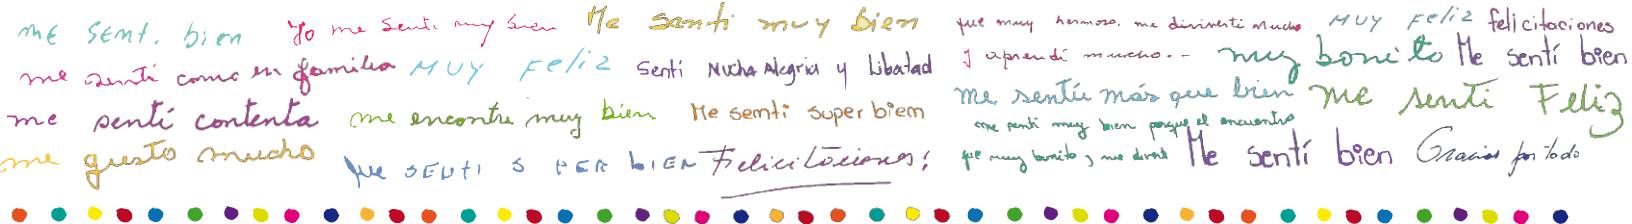 me sent. bien
Yo me senti muy bien
Me senti muy bien
fue muy hermoso. me divinerti mucho
y aprendí mucho..
MUY FeLiZ
felicitaciones
me sentí como en familia
MUY FeLiZ
Sentí Mucha Alegria y Libertad
muy bonito
Me sentí bien
me sentí contenta
me encontre muy bien
Me senti super bien
me sentíu más que bien
me senti Feliz
me senti muy bien porque el encuentro
fue muy bonito, me diverti
me gusto mucho
Felicitaciones!
Me sentí bien
Gracias por todo